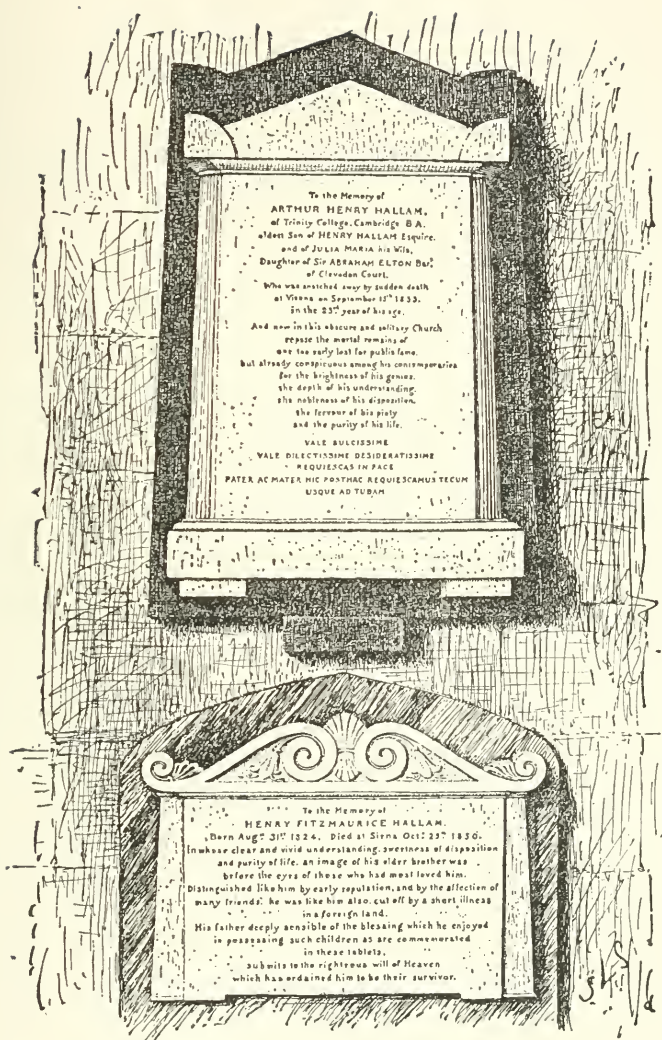 To the Memory of
ARTHUR HENRY HALLAM,
of Trinity College, Cambridge B A.
eldest Son of HENRY HALLAM Esquire,
and of JULIA MARIA his Wife,
Daughter of Sir ABRAHAM ELTON Bart
of Clevedon Court,
Who was snatched away by sudden death
at Vienna on September 15th 1833.
in the 23rd year of his age.
And now in this obscure and solitary Church
repose the mortal remains of
one too early lost for public fame,
but already conspicuous among his contemporaries
for the brightness of his genius,
the depth of his understanding,
the nobleness of his disposition,
the fervour of his piety
and the purity of his life.
VALE DULCISSIME
VALE DILECTISSIME DESIDERATISSIME
REQUIESCAS IN PACE
PATER AC MATER HIC POSTHAC REQUIESCAMUS TECUM
USQUE AD TUBAM
To the Memory of
HENRY FITZMAURICE HALLAM.
Born Augst 31st 1824. Died at Siena Octr 25th 1850.
In whose clear and vivid understanding, sweetness of disposition
and purity of life, an image of his elder brother was
before the eyes of those who had most loved him.
Distinguished like him by early reputation, and by the affection of
many friends; he was like him also, cut off by a short illness
in a foreign land.
His father deeply sensible of the blessing which he enjoyed
in possessing such children as are commemorated
in these tablets,
submits to the righteous will of Heaven
which has ordained him to be their survivor.